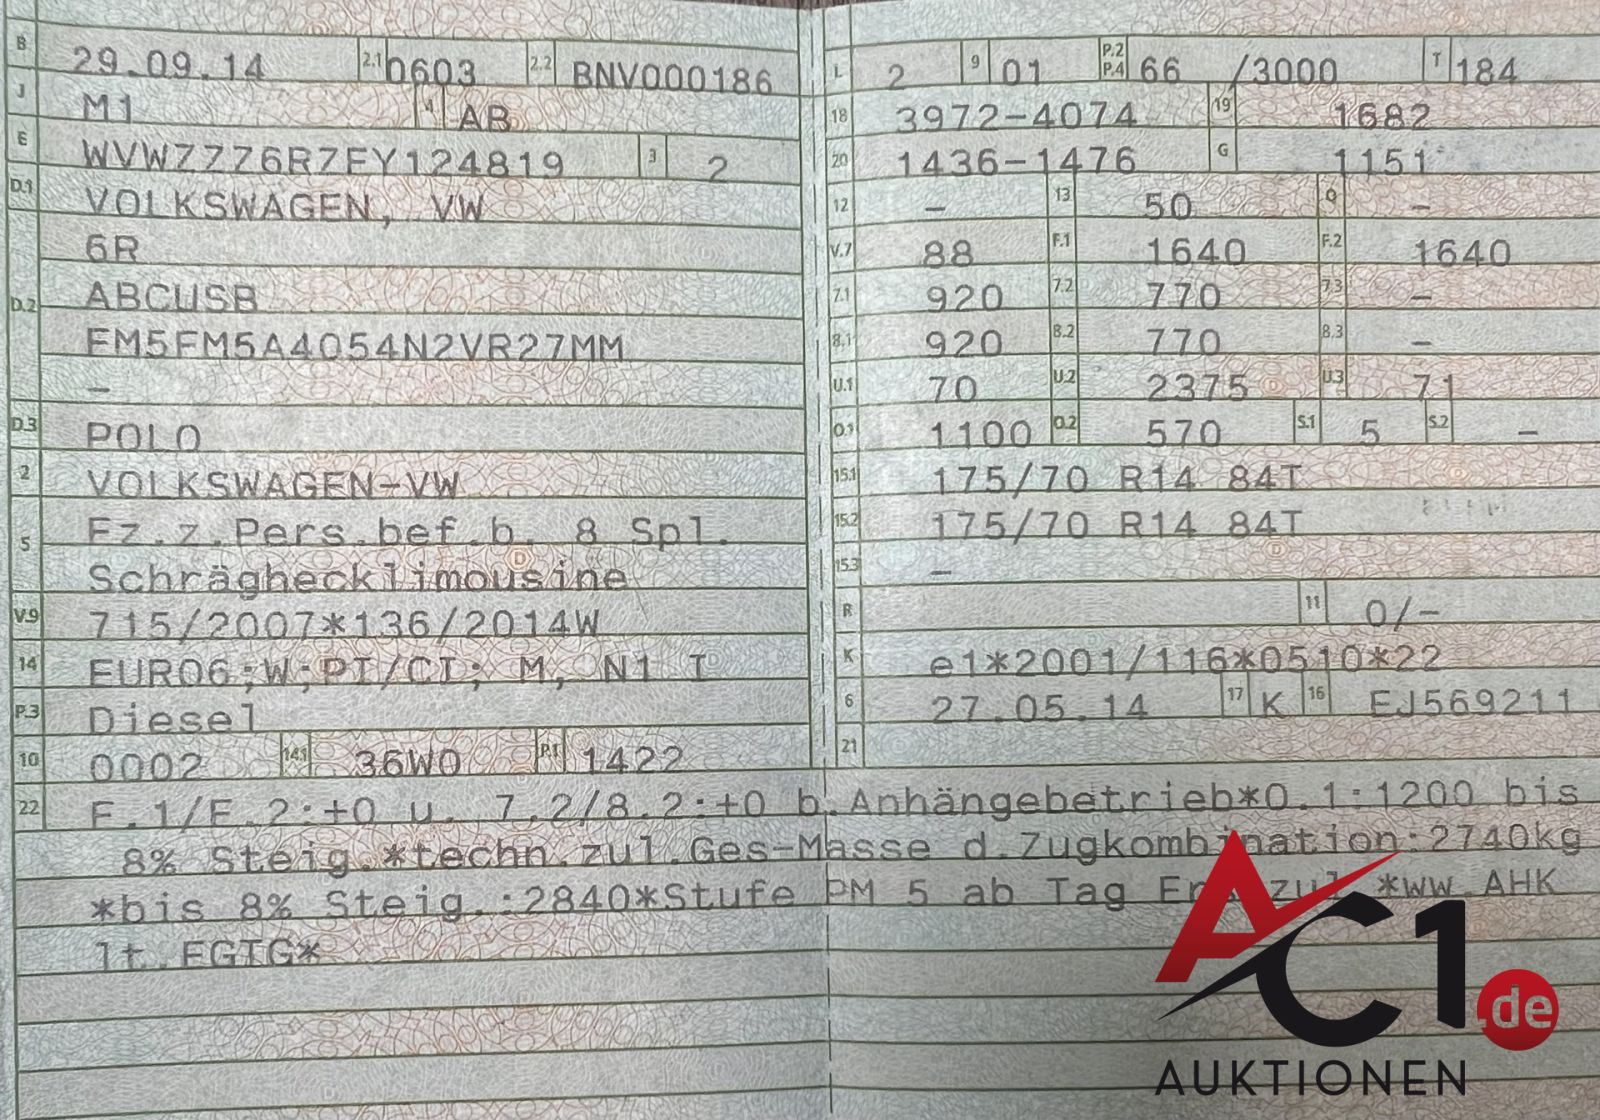 B 29.09.14 2.1 0603 2.2 BNV000186
J M1 4 AB
E WVWZZZ6RZFY124819 3 2
D.1 VOLKSWAGEN, VW
6R
D.2 ABCUSB
FM5FM5A4054N2VR27MM
–
D.3 POLO
2 VOLKSWAGEN-VW
5 Fz.z.Pers.bef.b. 8 Spl.
Schräghecklimousine
V.9 715/2007*136/2014W
14 EURO6;W;PI/CI; M, N1 I
P.3 Diesel
10 0002 14.1 36W0 P.1 1422
L 2 9 01 P.2 P.4 66 /3000 T 184
18 3972-4074 19 1682
20 1436-1476 G 1151
12 – 13 50 Q –
V.7 88 F.1 1640 F.2 1640
7.1 920 7.2 770 7.3 –
8.1 920 8.2 770 8.3 –
U.1 70 U.2 2375 U.3 71
O.1 1100 O.2 570 S.1 5 S.2 –
15.1 175/70 R14 84T
15.2 175/70 R14 84T
15.3 –
R 11 0/-
K e1*2001/116*0510*22
6 27.05.14 17 K 16 EJ569211
21
22 F.1/F.2:+0 u. 7.2/8.2:+0 b.Anhängebetrieb*O.1:1200 bis
8% Steig.*techn.zul.Ges-Masse d.Zugkombination:2740kg
*bis 8% Steig.:2840*Stufe PM 5 ab Tag zul.*ww.AHK
lt.EGTG*
AC1.de
AUKTIONEN